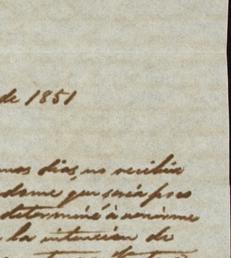 de 1851
mos dias, no recibia
dome que seria poco
determiné à venirme
la intencion de